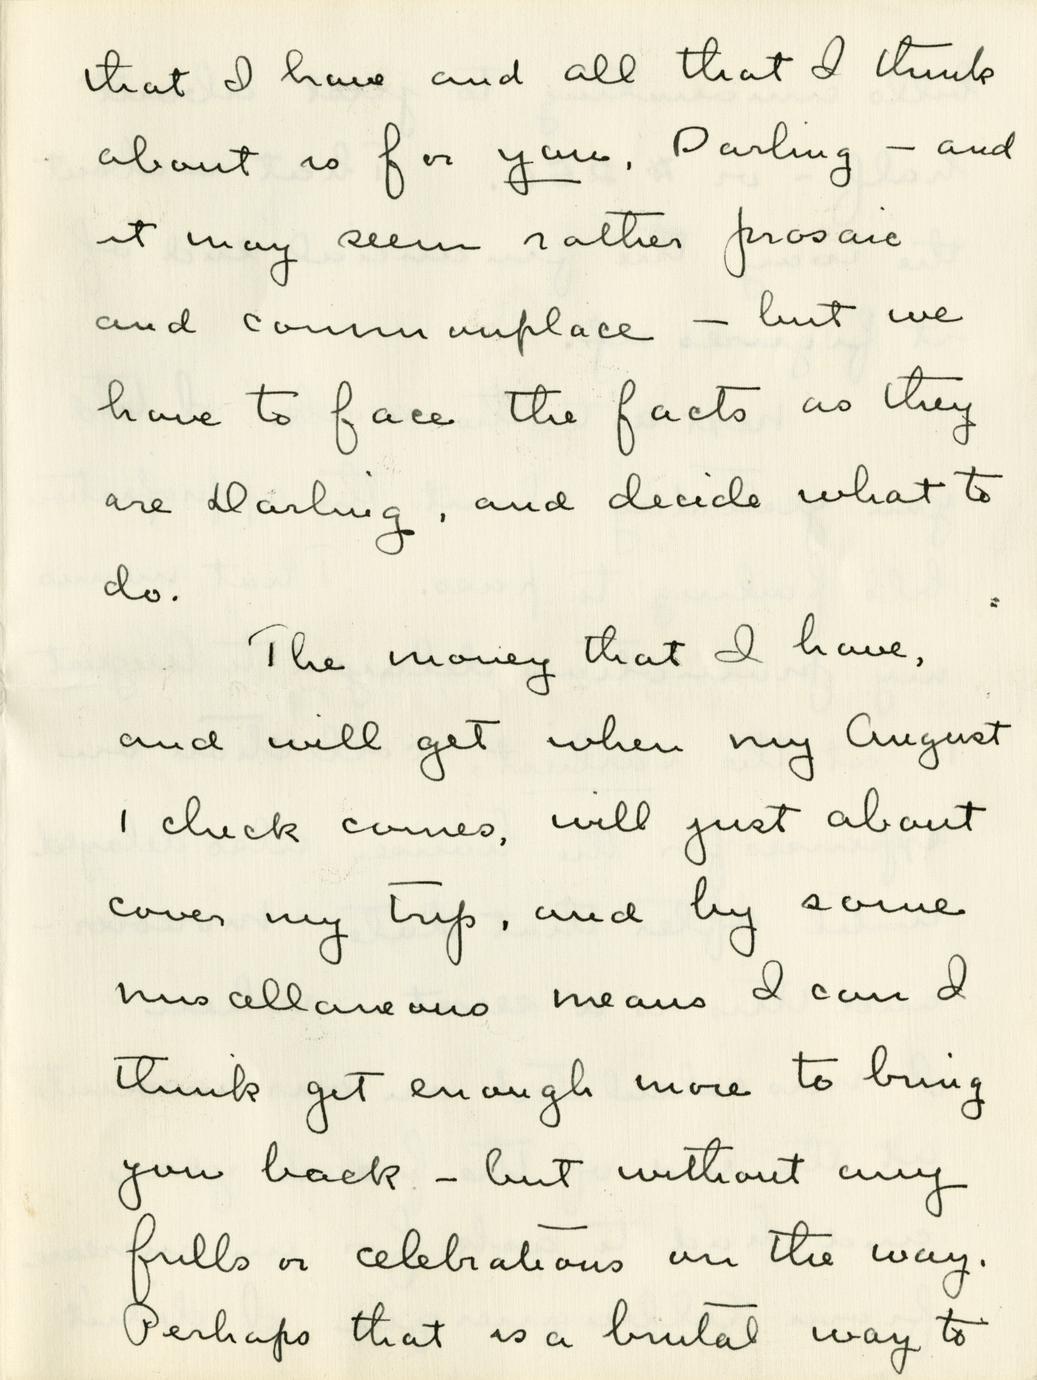 that I have and all that I think
about is for you, Darling – and
it may seem rather prosaic
and commonplace – but we
have to face the facts as they
are Darling, and decide what to
do.
The money that I have,
and will get when my August
1 check comes, will just about
cover my trip, and by some
miscellaneous means I can I
think get enough more to bring
you back – but without any
frills or celebrations on the way.
Perhaps that is a brutal way to